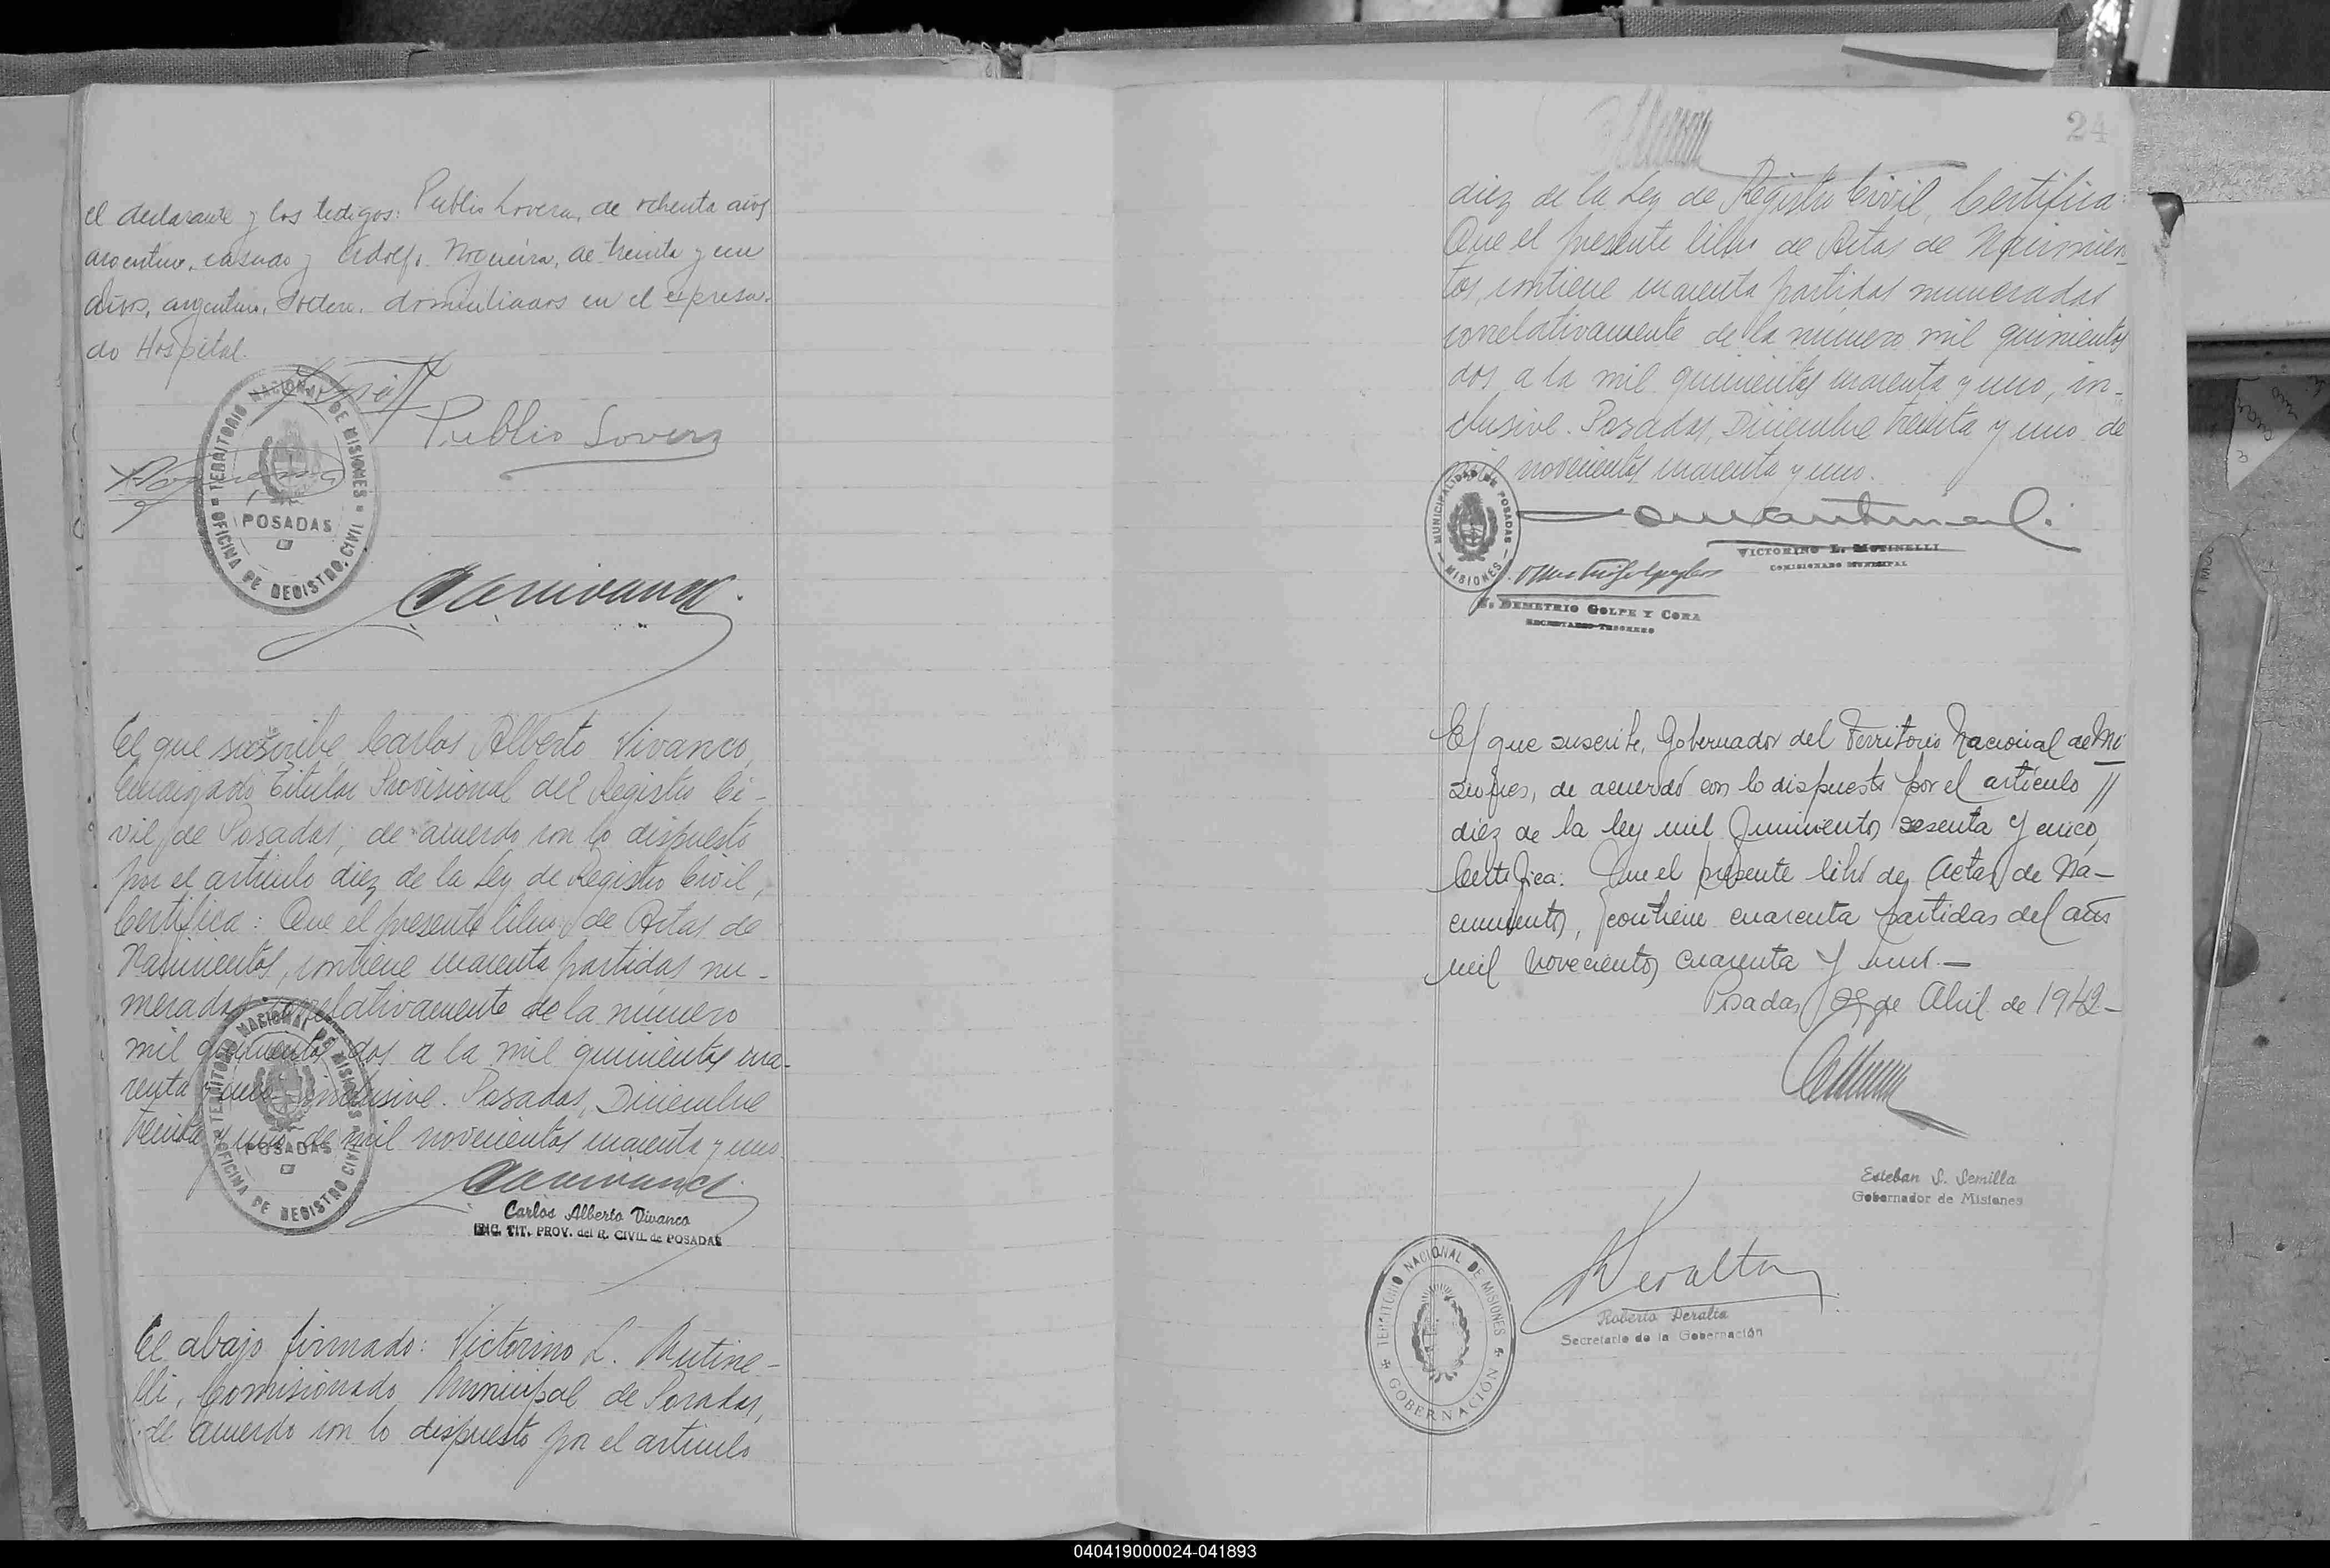 el declarante y los testigos: Publio Lovera, de ochenta años
argentino, casado y Adolfo Nogueira, de treinta y un
años, argentino, soltero, domiciliados en el expresa-
do Hospital.
Publio Lovera
TERRITORIO NACIONAL DE MISIONES
POSADAS
OFICINA DE REGISTRO CIVIL
El que suscribe, Carlos Alberto Vivanco,
Encargado Titular Provisional del Registro Ci-
vil de Posadas, de acuerdo con lo dispuesto
por el artículo diez de la Ley de Registro Civil,
Certifica: Que el presente libro de Actas de
Nacimientos, contiene cuarenta partidas nu-
meradas correlativamente de la número
mil quinientos dos a la mil quinientos cua-
renta y uno inclusive. Posadas, Diciembre
treinta y uno de mil novecientos cuarenta y uno
TERRITORIO NACIONAL DE MISIONES
POSADAS
OFICINA DE REGISTRO CIVIL
Carlos Alberto Vivanco
ENC. TIT. PROV. del R. CIVIL de POSADAS
El abajo firmado: Victorino L. Mutine-
lli, Comisionado Municipal de Posadas,
de acuerdo con lo dispuesto por el artículo
24
diez de la Ley de Registro Civil, Certifica:
Que el presente libro de Actas de Nacimien-
tos, contiene cuarenta partidas numeradas
correlativamente de la número mil quinientos
dos a la mil quinientos cuarenta y uno, in-
clusive. Posadas, Diciembre treinta y uno de
mil novecientos cuarenta y uno.
MUNICIPALIDAD DE POSADAS
MISIONES
VICTORINO L. MUTINELLI
COMISIONADO MUNICIPAL
DEMETRIO GOLPE Y CORA
SECRETARIO TESORERO
El que suscribe, Gobernador del Territorio Nacional de Mi
siones, de acuerdo con lo dispuesto por el artículo //
diez de la ley mil quinientos sesenta y cinco,
Certifica: Que el presente libro de Actas de Na-
cimientos, contiene cuarenta partidas del año
mil novecientos cuarenta y uno.—
Posadas, de Abril de 1942-
Esteban S. Semilla
Gobernador de Misiones
TERRITORIO NACIONAL DE MISIONES
GOBERNACIÓN
Peralta
Roberto Peralta
Secretario de la Gobernación
040419000024-041893